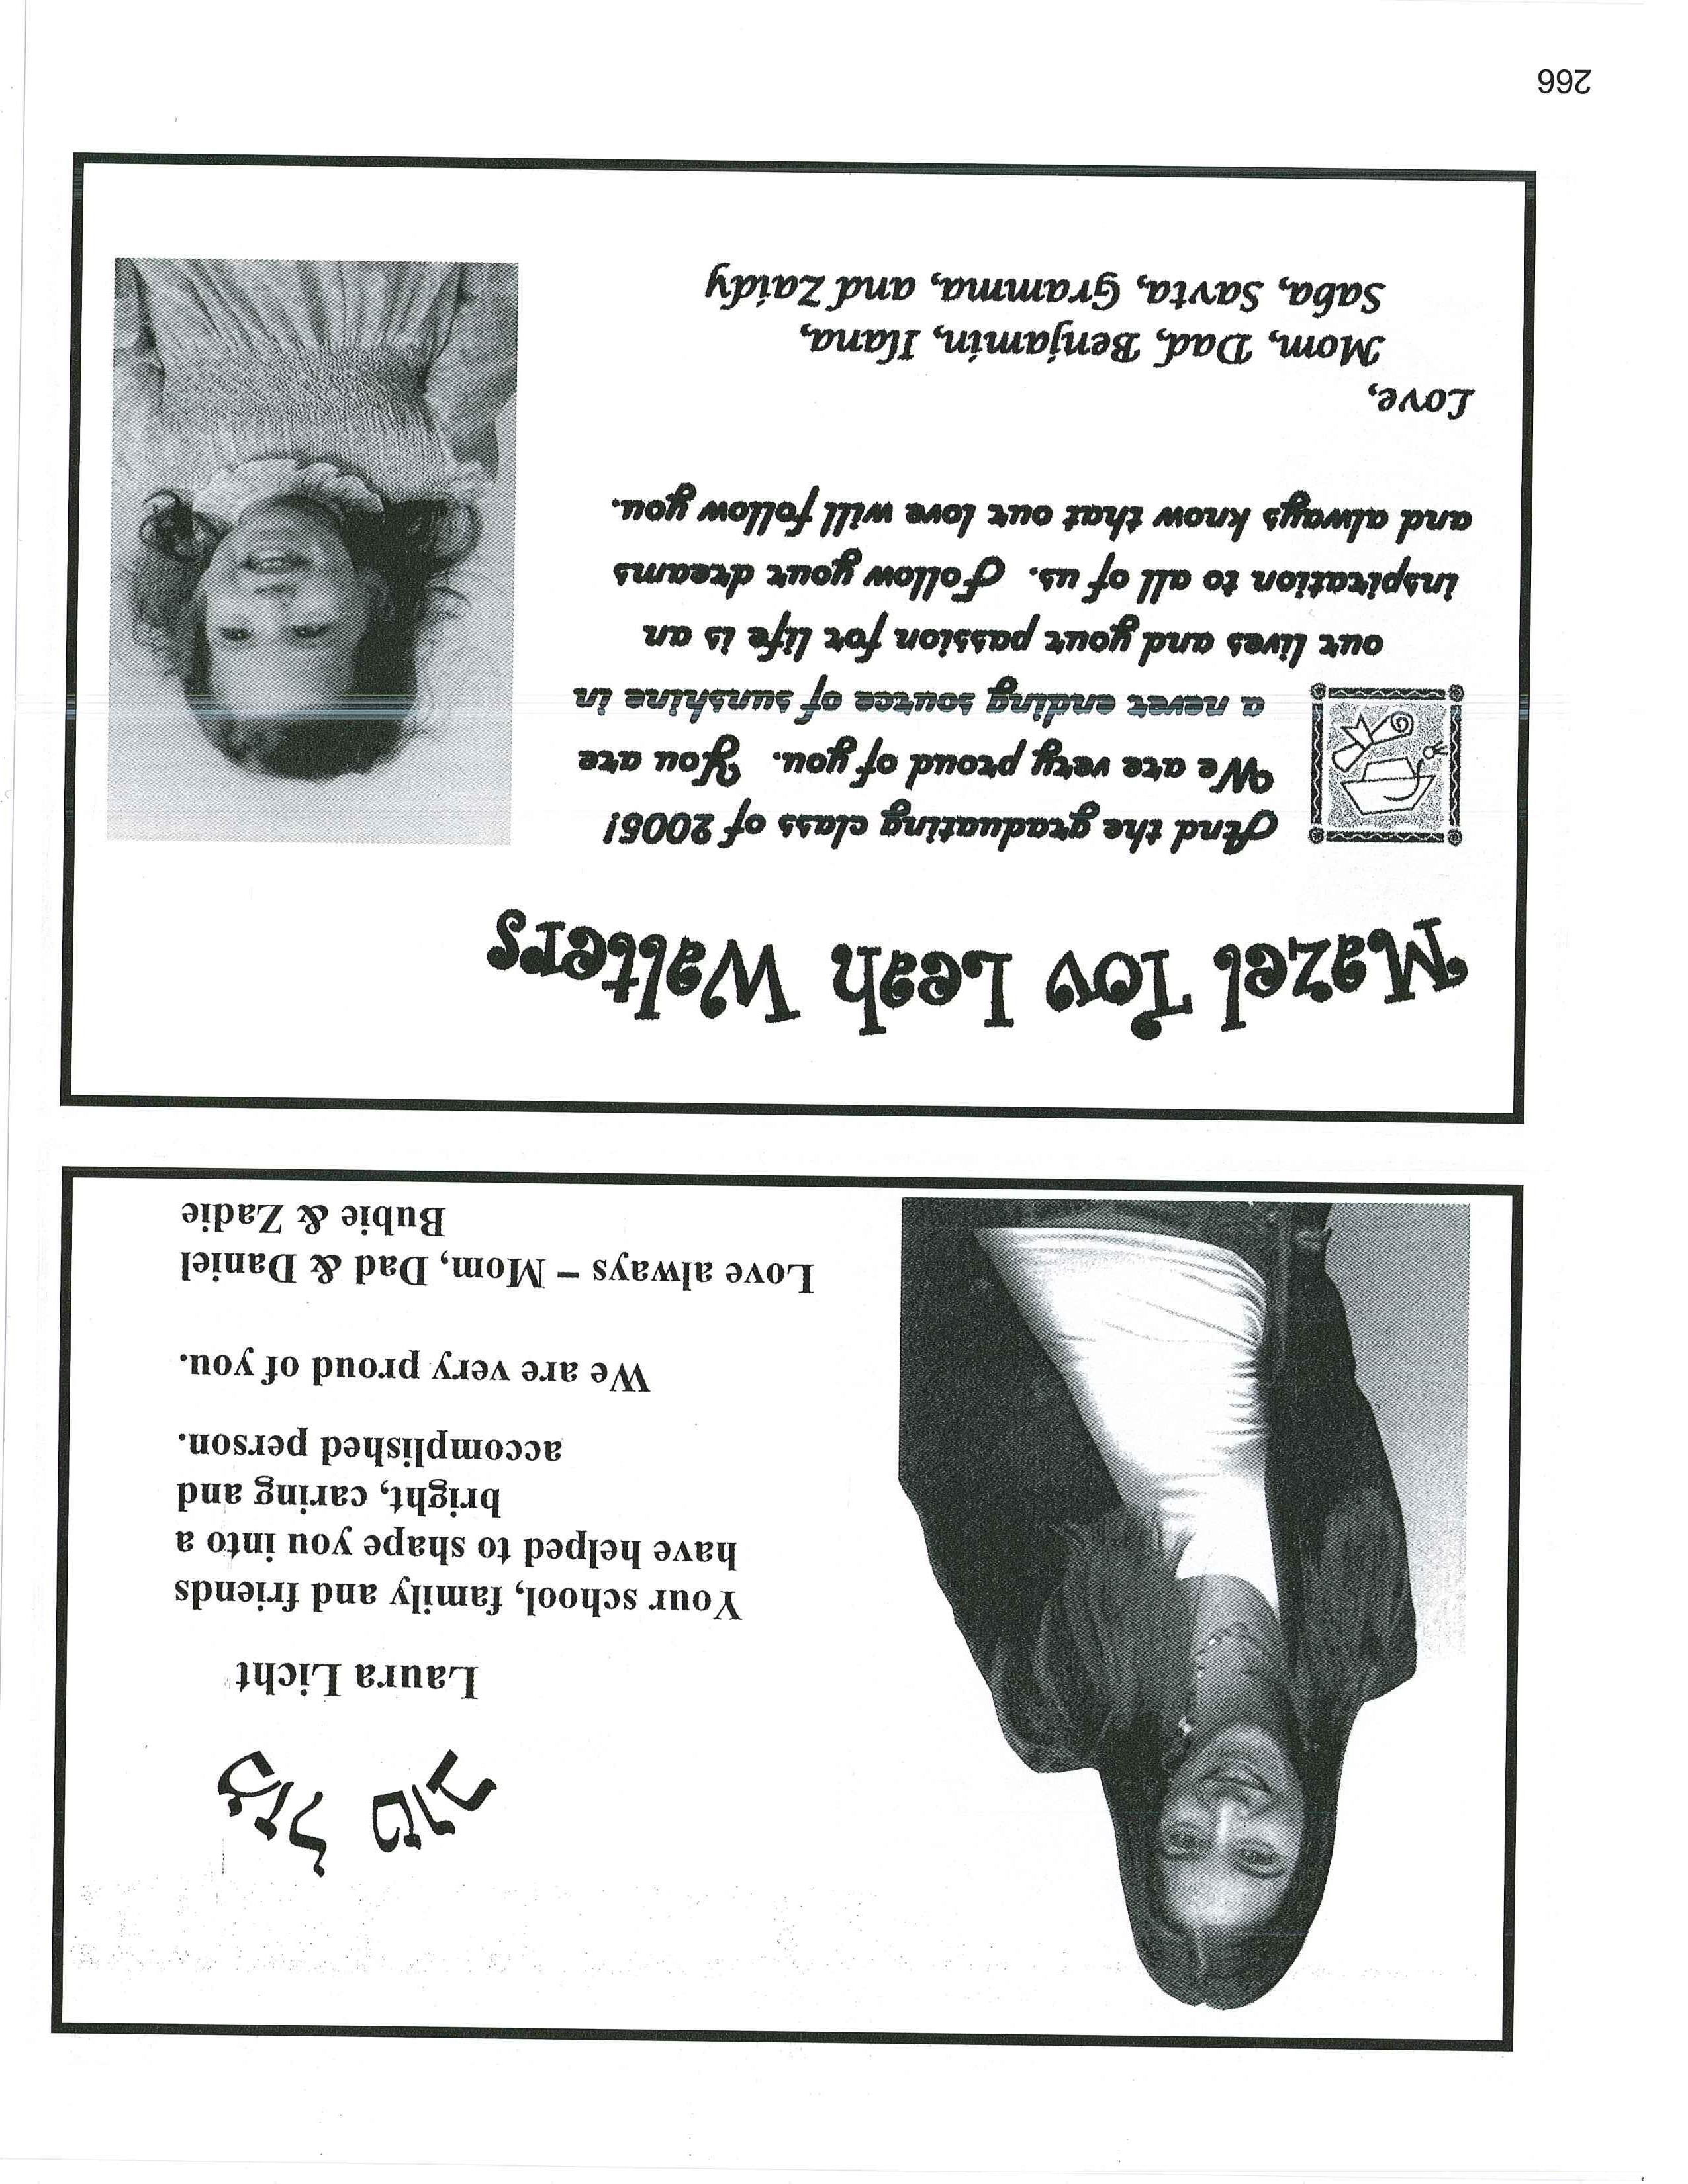 מזל טוב
Laura Licht
Your school, family and friends
have helped to shape you into a
bright, caring and
accomplished person.
We are very proud of you.
Love always – Mom, Dad & Daniel
Bubie & Zadie
Mazel Tov Leah Walters
And the graduating class of 2005!
We are very proud of you. You are
a never ending source of sunshine in
our lives and your passion for life is an
inspiration to all of us. Follow your dreams
and always know that our love will follow you.
Love,
Mom, Dad, Benjamin, Ilana,
Saba, Savta, Gramma, and Zaidy
266